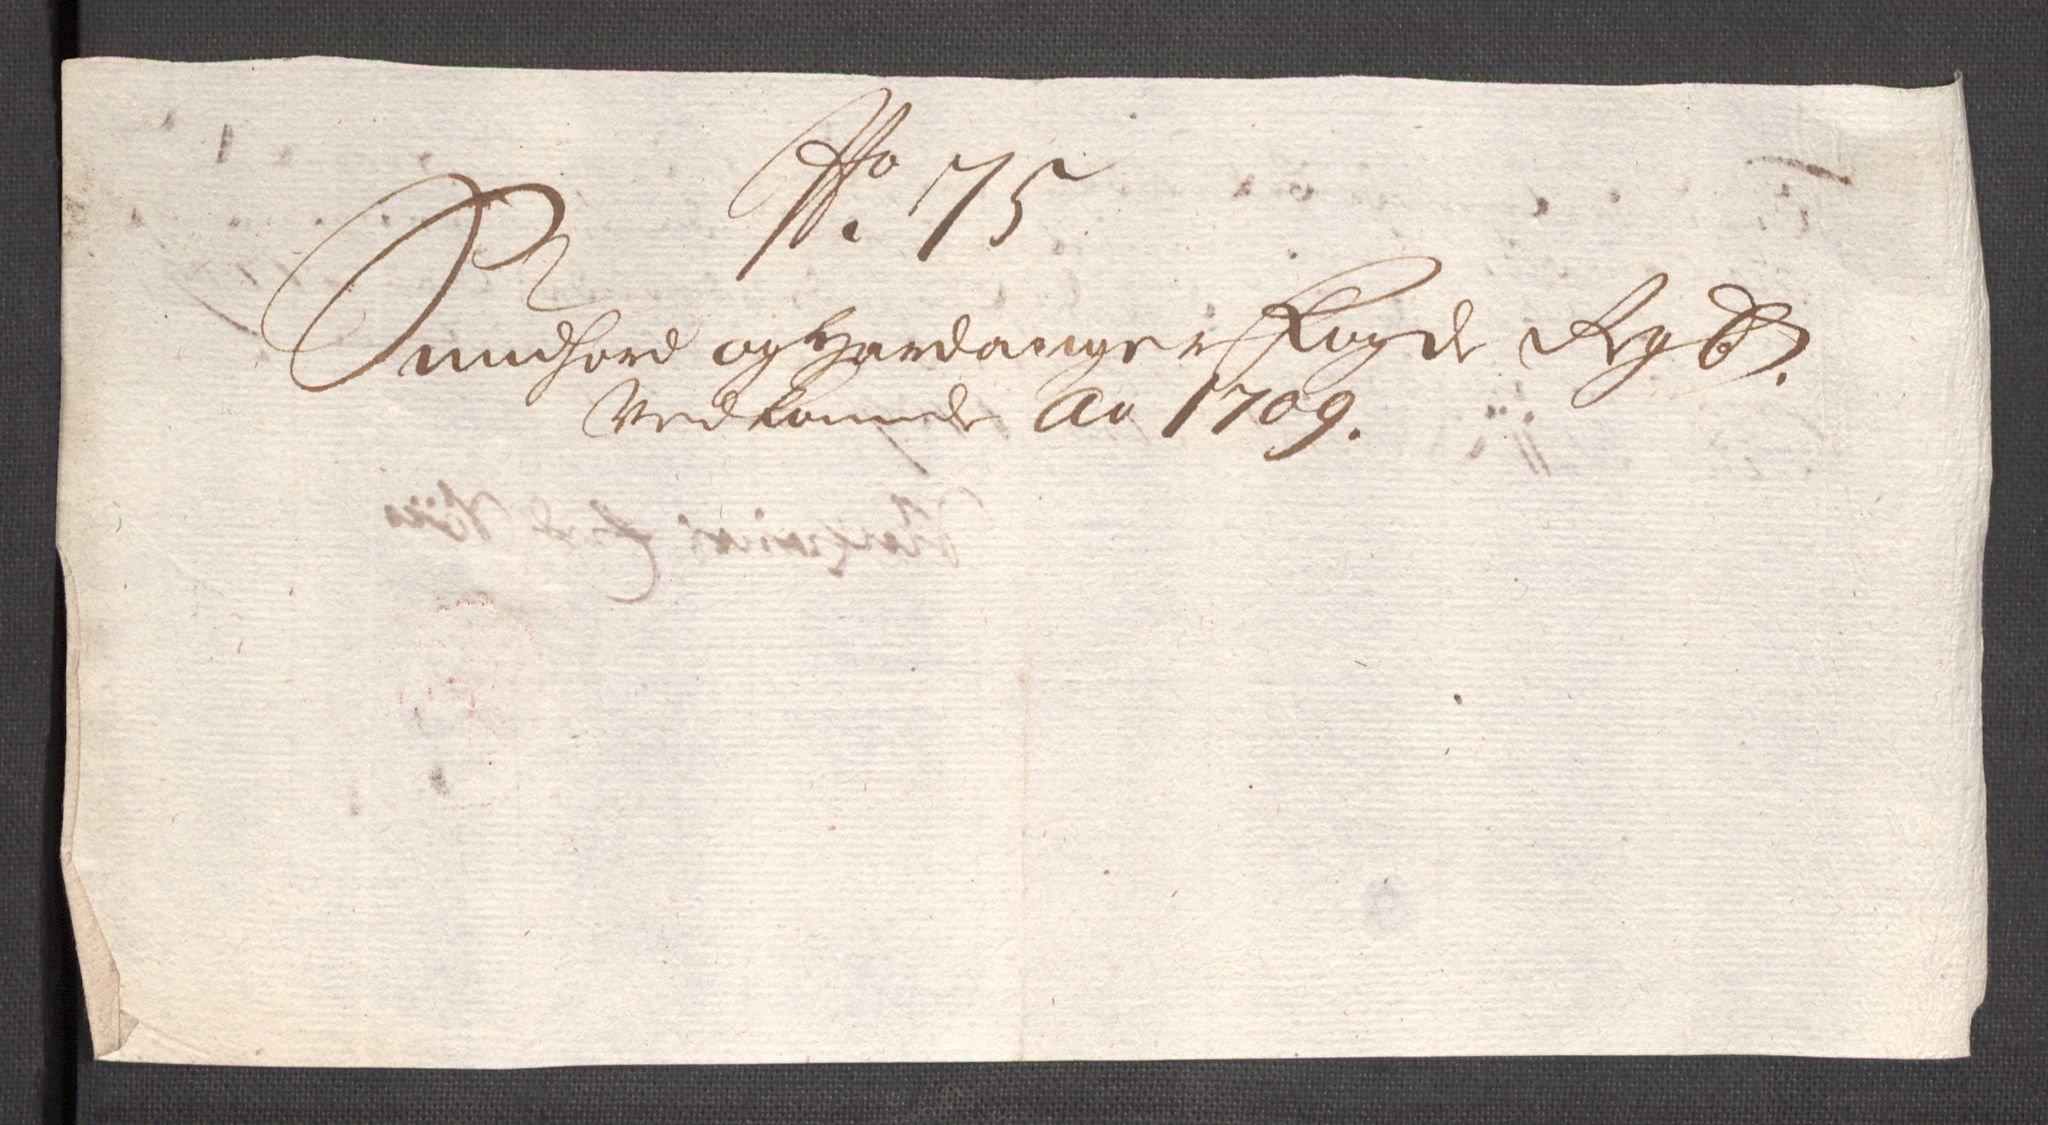 No. 75
Sundhord og Hardanger Fogde Regsk.
Vedkommde Ao 1709.